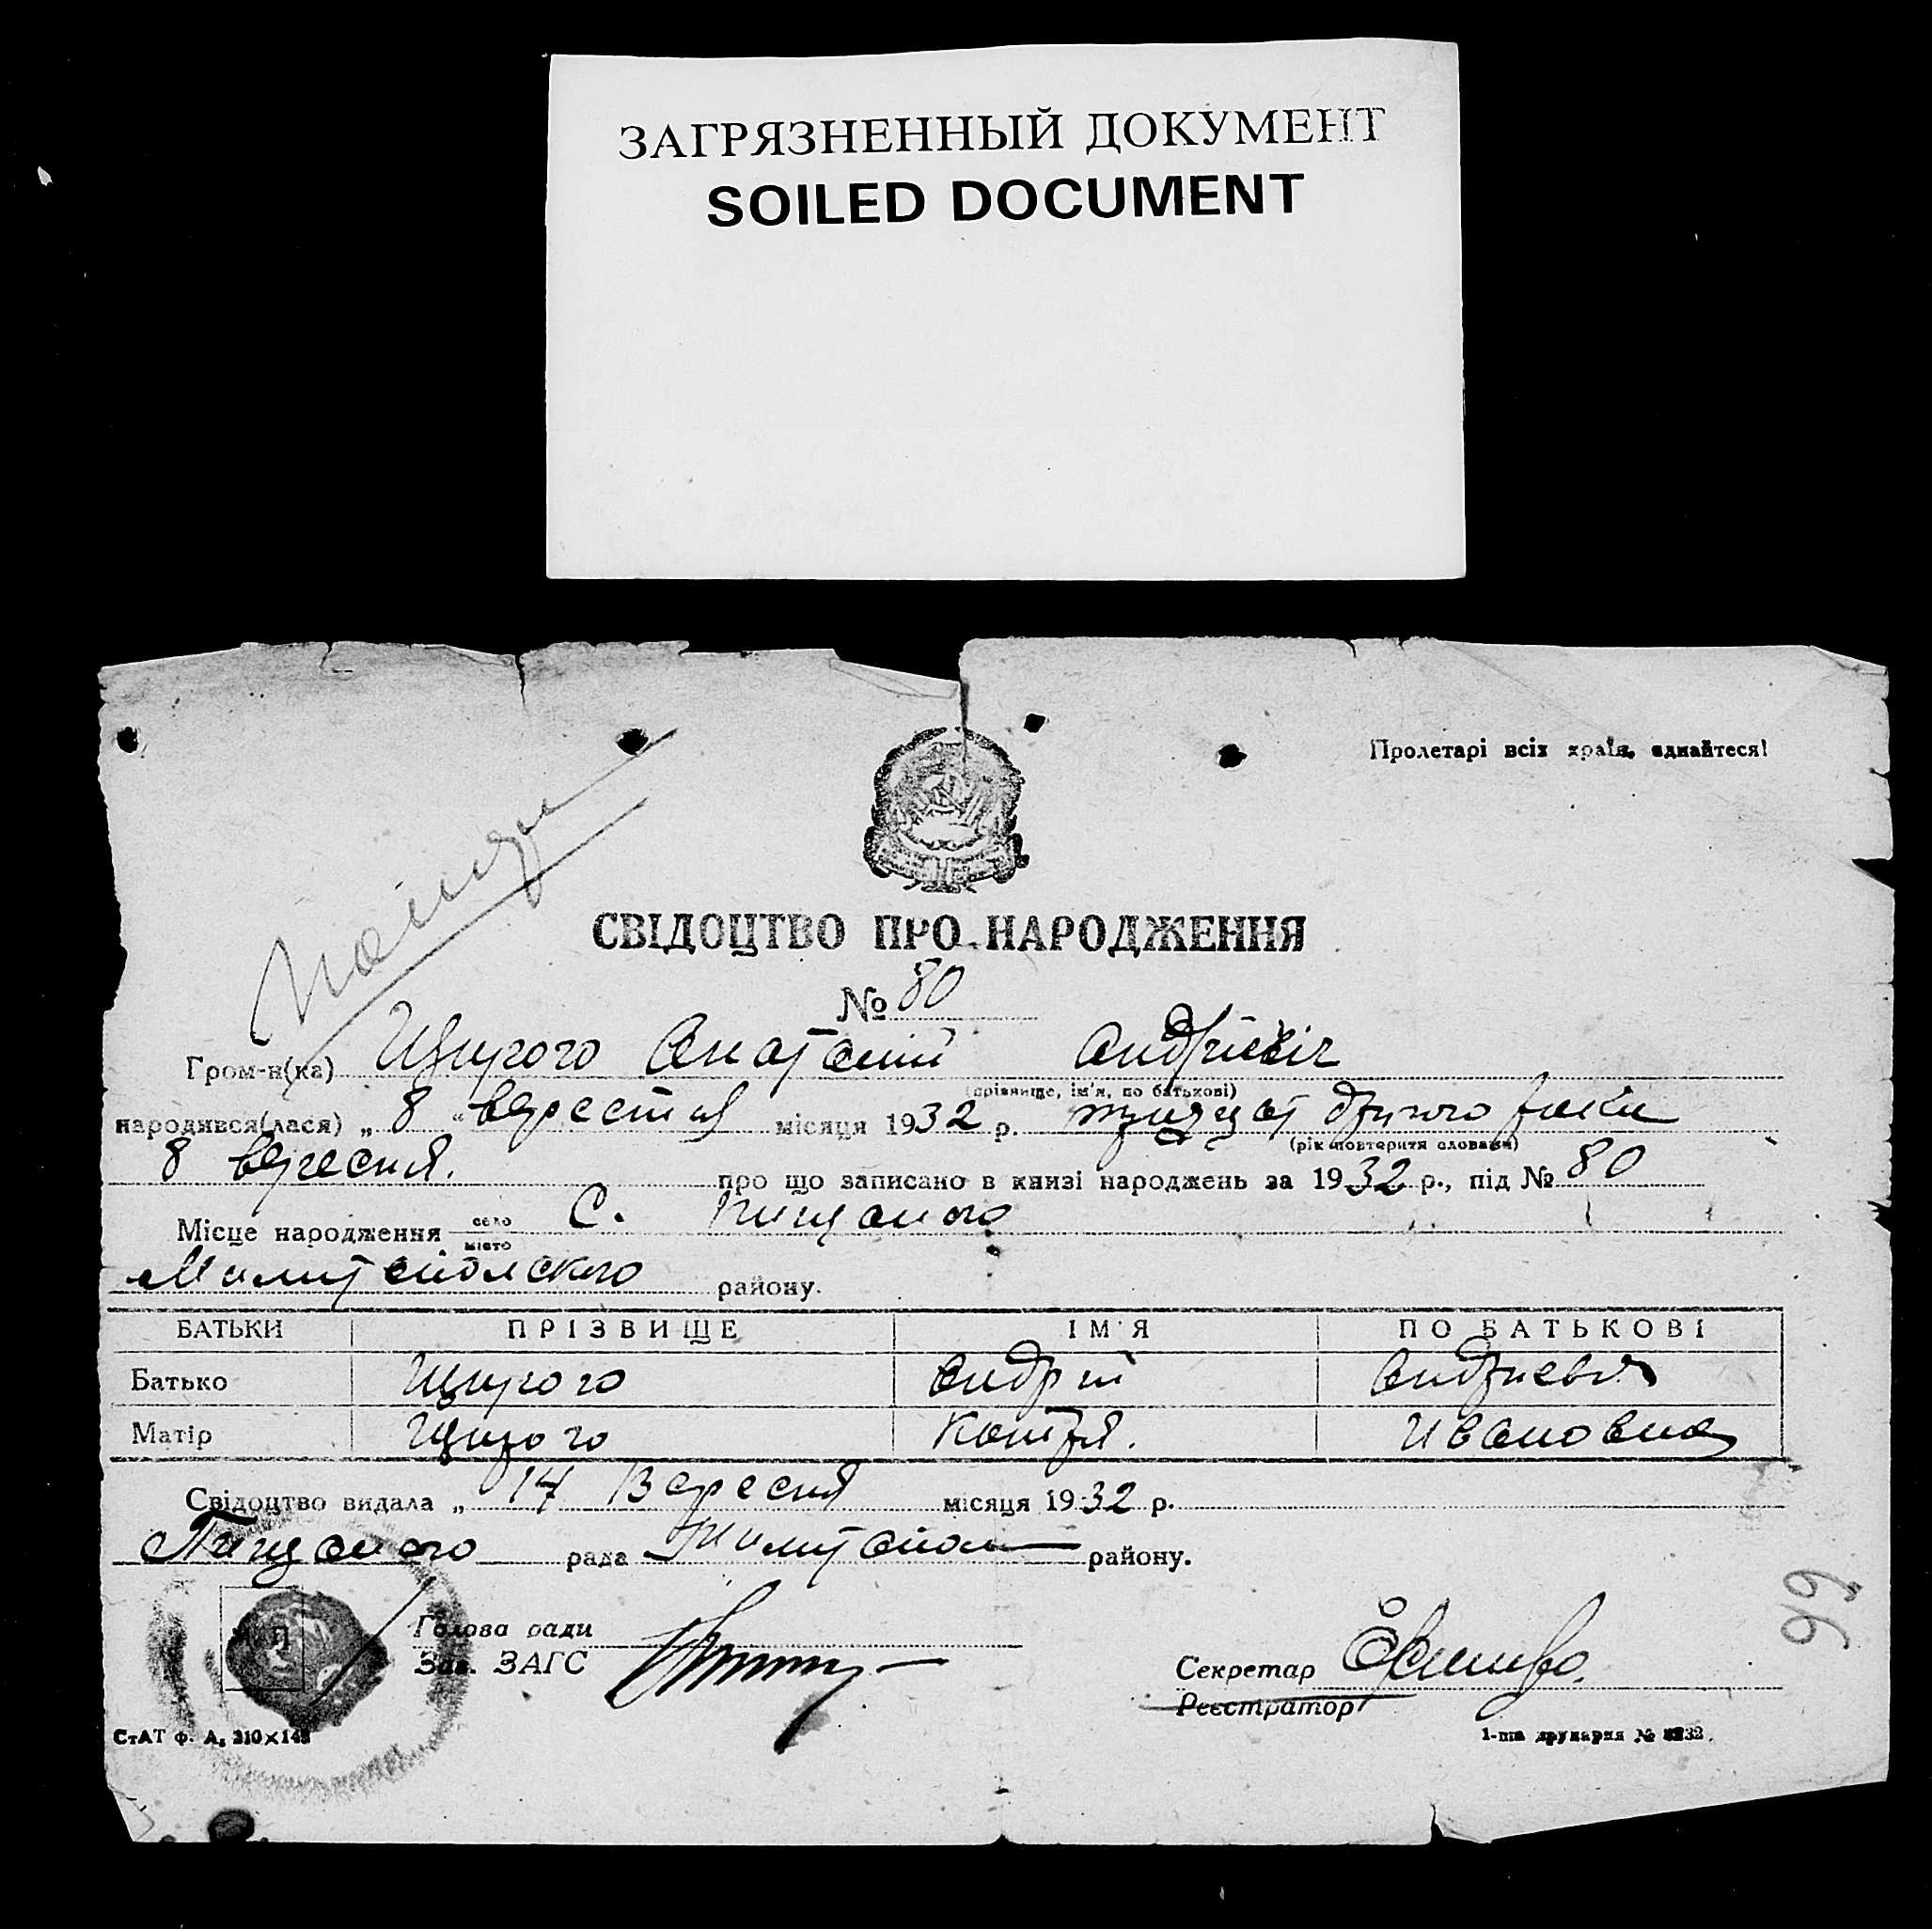 ЗАГРЯЗНЕННЫЙ ДОКУМЕНТ
SOILED DOCUMENT
Пролетарі всіх країн, єднайтеся!
СВІДОЦТВО ПРО НАРОДЖЕННЯ
№ 80
Гром-н(ка) Щирого Анатолій Андрієвіч
(прізвище, ім'я, по батькові)
народився(лася) „ 8 " вересния місяця 1932 р. тридцат другого року
(рік повторити словами)
8 вересня. про що записано в книзі народжень за 1932 р., під № 80
Місце народження село місто С. Пищаного
района району.
БАТЬКИ ПРІЗВИЩЕ ІМ'Я ПО БАТЬКОВІ
Батько Щирого Андрій Андриевич
Матір Щирого Катря. Ивановна
Свідоцтво видала „ 14 Вересня місяця 1932 р.
Пищаного рада району.
Голова ради
Зав. ЗАГС
Секретар
Реєстратор
СтАТ ф. А5 210×148
1-ша друкарня №
99